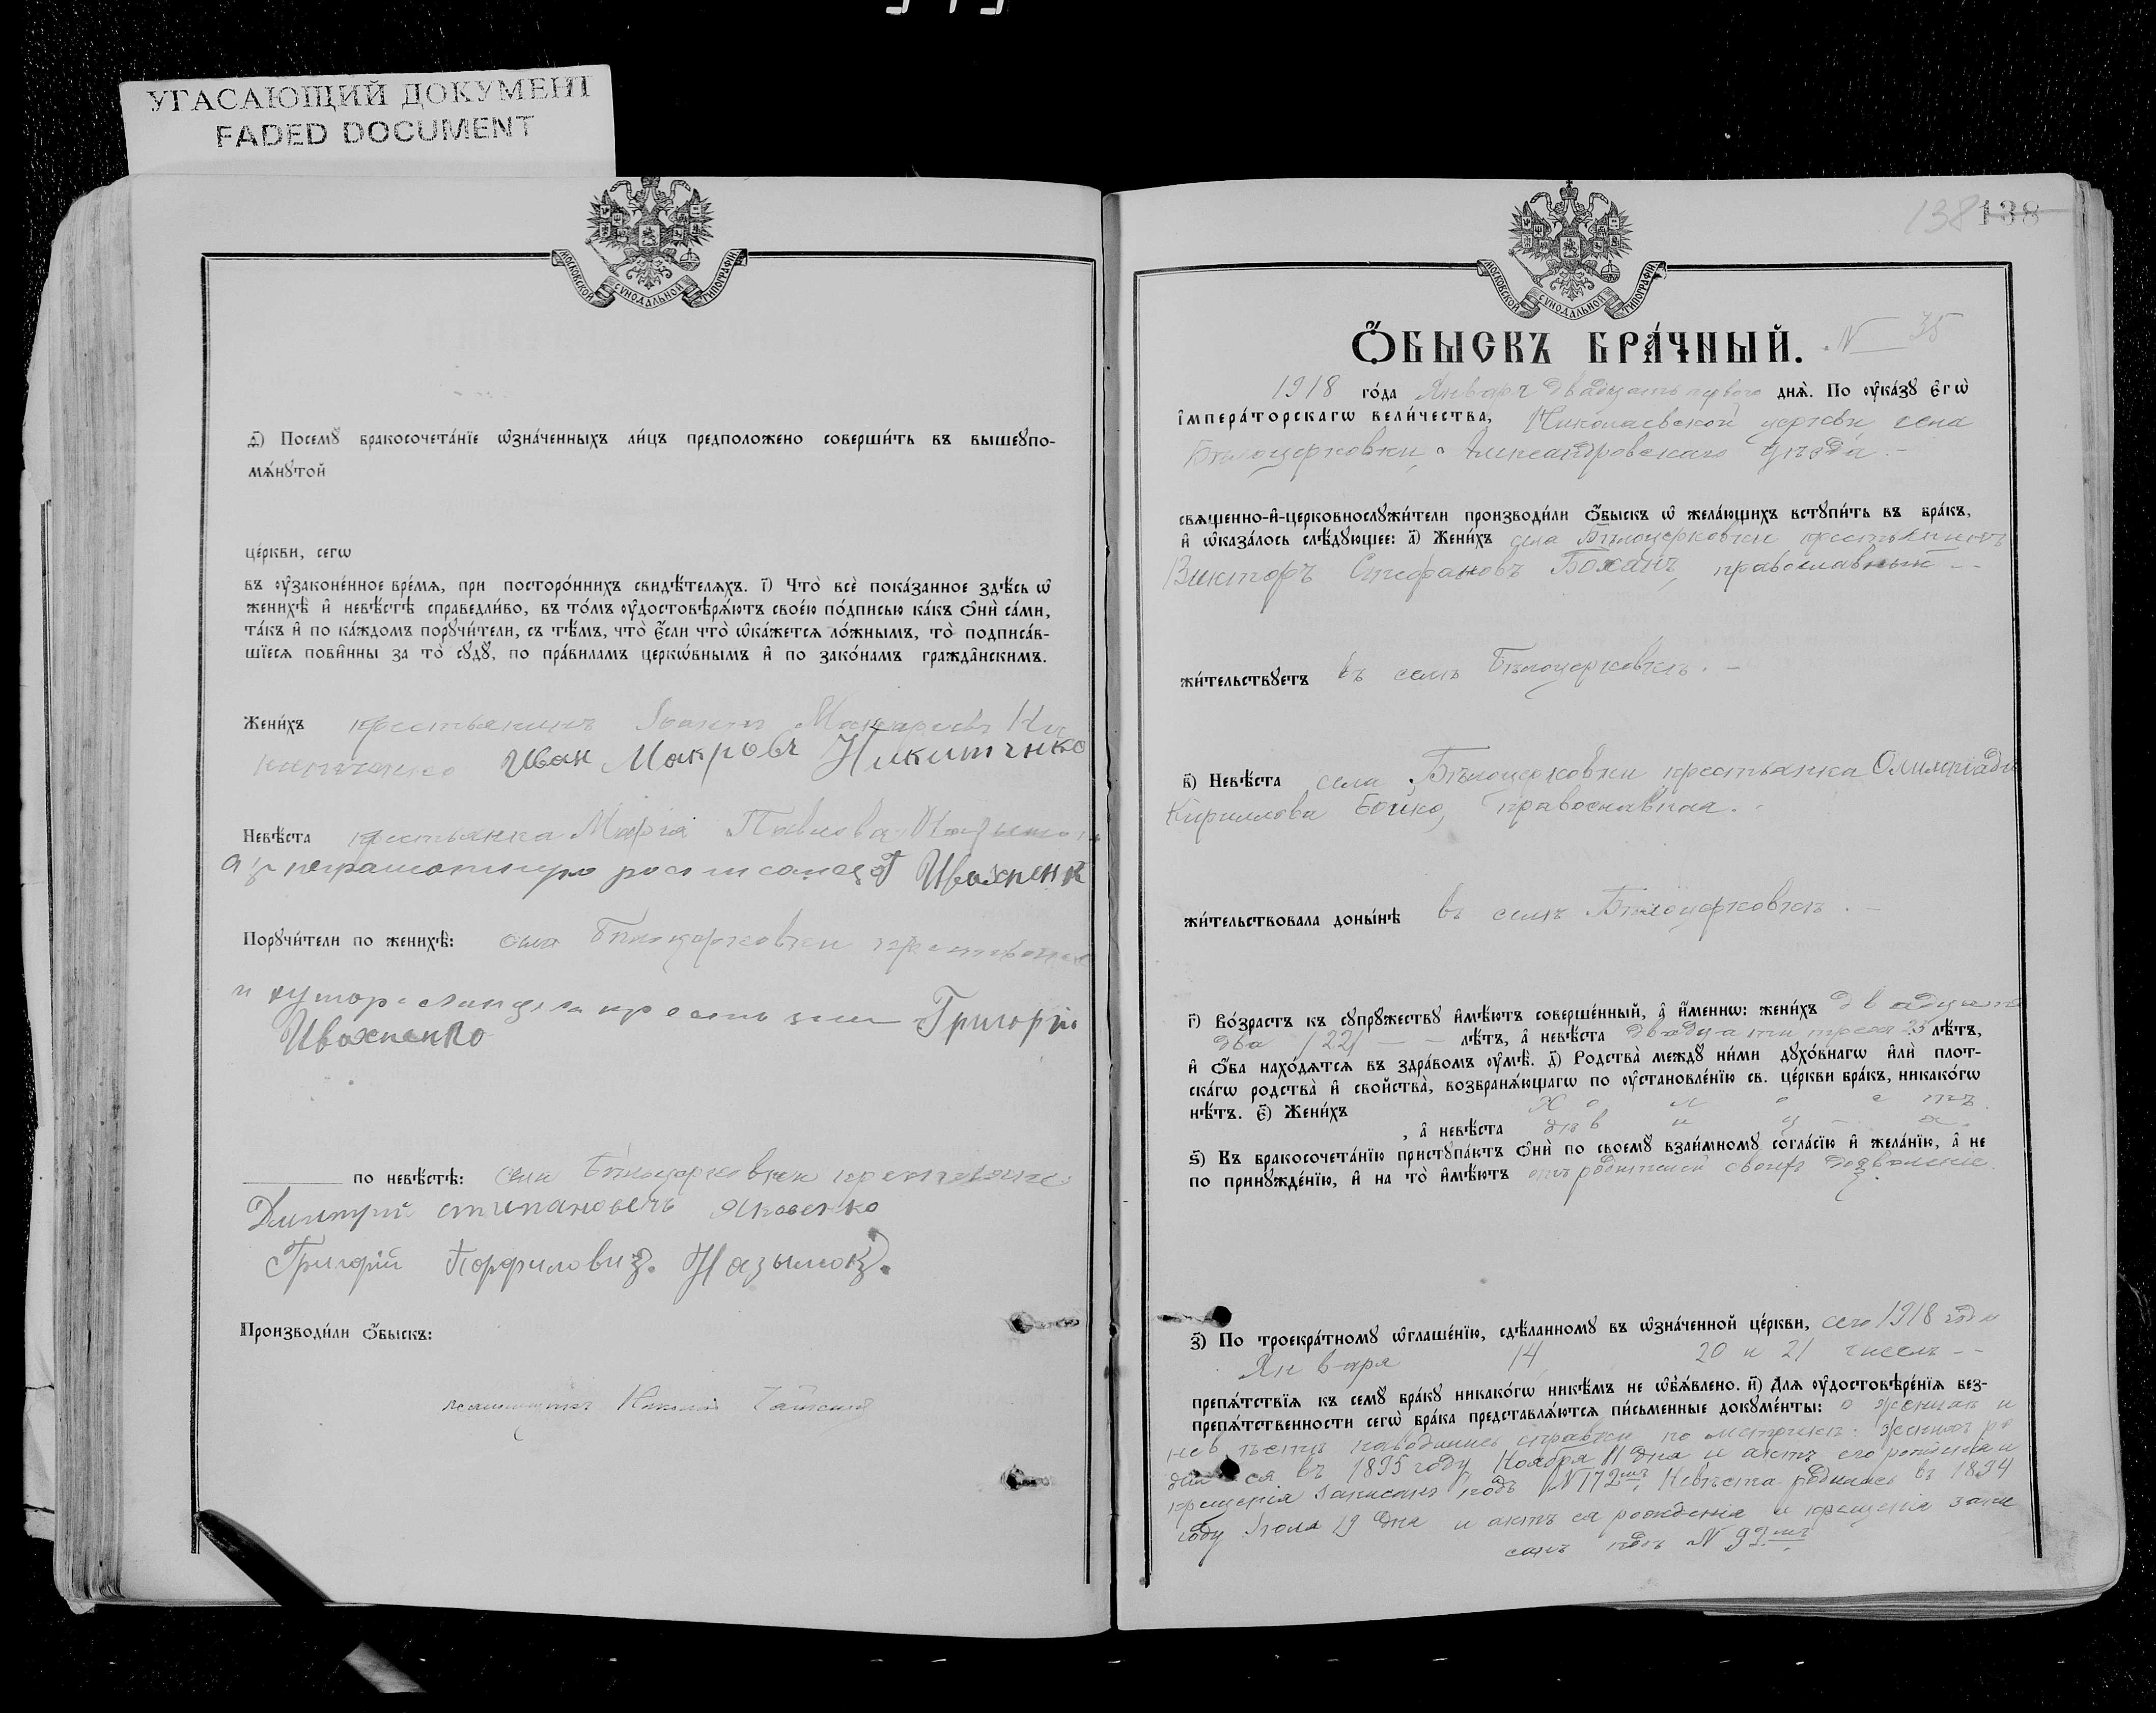 УГАСАЮЩИЙ ДОКУМЕНТ
FADED DOCUMENT
МОСКОВСКОЙ СѴНОДАЛЬНОЙ ТИПОГРАФІИ
д҃і) Посемꙋ̀ бракосочета́нїе ѡ҆зна́ченныхъ ли́цъ предположено соверши́ть въ вышеꙋпо-
мѧ́нꙋтой
це́ркви, сегѡ̀
въ ᲂу҆законе́нное вре́мѧ, при посторо́ннихъ свидѣ́телѧхъ. і҃) Что̀ всѐ пока́занное здѣ́сь ѡ҆
женихѣ̀ и҆ невѣ́стѣ справедли́во, въ то́мъ ᲂу҆достовѣрѧ́ютъ свое́ю по́дписью ка́къ ѻ҆нѝ са́ми,
та́къ и҆ по ка́ждомъ порꙋчи́тели, съ тѣ́мъ, что̀ є҆́сли что̀ ѡ҆ка́жетсѧ ло́жнымъ, то̀ подписа́в-
шїесѧ пови́нны за то̀ сꙋдꙋ̀, по пра́виламъ церкѡ́внымъ и҆ по зако́намъ гражда̂нскимъ.
Жени́хъ крестьянинъ Іоаннъ Макаріевъ Ни
китченко Иван Макровъ Никитчнко
Невѣ́ста крестьянка Марія Павлова
а за неграмотную росписался Г Ивахненк
Порꙋчи́тели по женихѣ̀: села Бѣлоцерковки крестьяне
и
Григорій
Ивахненко
по невѣ́стѣ: села Бѣлоцерковки крестьяне
Дмитрий стипановечъ Яковенко
Григорій Порфиловиз. Назымокз.
Производи́ли ѻ҆́быскъ:
Николай
138 138
МОСКОВСКОЙ СѴНОДАЛЬНОЙ ТИПОГРАФІИ
Ѻ҆́БЫСКЪ БРА́ЧНЫЙ. N 35
1918 го́да Января двадцать перваго днѧ̀. По ᲂу҆ка́зꙋ є҆гѡ̀
і҆мпера́торскагѡ вели́чества, Николаевской церкви села
Бѣлоцерковки, Александровскаго уѣзда.—
свѧщенно-и҆-церковнослꙋжи́тели производи́ли ѻ҆́быскъ ѡ҆ жела́ющихъ встꙋпи́ть въ бра́къ,
и҆ ѡ҆каза́лось слѣ́дꙋющее: а҃) Жени́хъ села Бѣлоцерковки крестьянинъ
Викторъ Стефановъ Божанъ, православный —
жи́тельствꙋетъ въ селѣ Бѣлоцерковкѣ. —
в҃) Невѣ́ста села Бѣлоцерковки крестьянка Олимпіада
Кириллова Бойко, православная.
жи́тельствовала доны́нѣ въ селѣ Бѣлоцерковкѣ. —
г҃) Во́зрастъ къ сꙋпрꙋ́жествꙋ и҆мѣ́ютъ соверше́нный, а҆ и҆́меннѡ: жени́хъ двадцати
два /22/ — — лѣ́тъ, а҆ невѣ́ста двадцати трехъ 23 лѣ́тъ,
и҆ ѻ҆́ба нахо́дѧтсѧ въ здра́вомъ ᲂу҆мѣ̀. д҃) Родства̀ междꙋ̀ ни́ми дꙋхо́внагѡ и҆лѝ плот-
ска́гѡ родства̀ и҆ свойства̀, возбранѧ́ющагѡ по ᲂу҆становле́нїю св. це́ркви бра́къ, никако́гѡ
нѣ́тъ. є҃) Жени́хъ х о л о с тъ
, а҆ невѣ́ста дѣ в и ц а.
ѕ҃) Къ бракосочета́нїю пристꙋпа́ютъ ѻ҆нѝ по своемꙋ̀ взаи́мномꙋ согла́сїю и҆ жела́нїю, а҆ не
по принꙋжде́нїю, и҆ на то̀ и҆мѣ́ютъ отъ родителей своихъ дозволеніе.
з҃) По троекра́тномꙋ ѡ҆глаше́нїю, сдѣ́ланномꙋ въ ѡ҆зна́ченной це́ркви, сего 1918 года
Января 14, 20 и 21 чиселъ —
препѧ́тствїѧ къ семꙋ̀ бра́кꙋ никако́гѡ никѣ́мъ не ѡ҆б̾ѧ́влено. и҃) Длѧ ᲂу҆достовѣре́нїѧ без-
препѧ́тственности сегѡ̀ бра́ка представлѧ́ютсѧ пи́сьменные докꙋме́нты: о женихѣ и
невѣстѣ наводились справки по метрикѣ: женихъ ро
дился въ 1895 году Ноября 11 дня и актъ его рожденія и
крещенія записанъ подъ N 172мъ. Невѣста родилась въ 1894
году Іюля 19 дня и актъ ея рожденія и крещенія запи
санъ подъ N 99мъ.